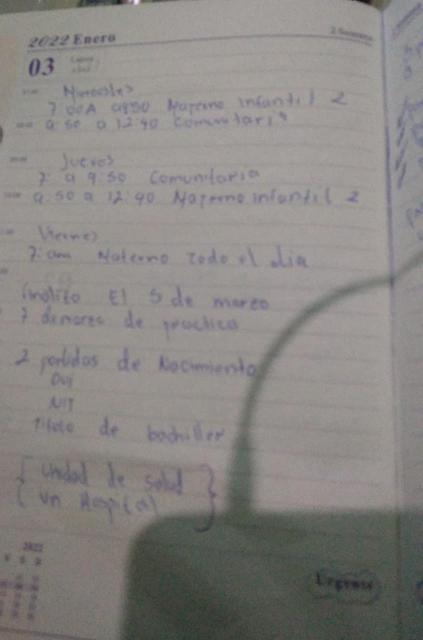 2022 Enero
2 Semana
03 Lunes
Miercoles
7:00 A a 9:50 Materno Infantil 2
9:50 a 12:40 Comunitaria
Jueves
7: a 9:50 Comunitaria
9:50 a 12:40 Materno infantil 2
Viernes
7: am Materno todo el dia
El 5 de marzo
7 de marzo de practica
2 partidas de Nacimiento
DUI
NIT
Titulo de bachiller
{ Unidad de salud
un Hospital }
2022
Urgente